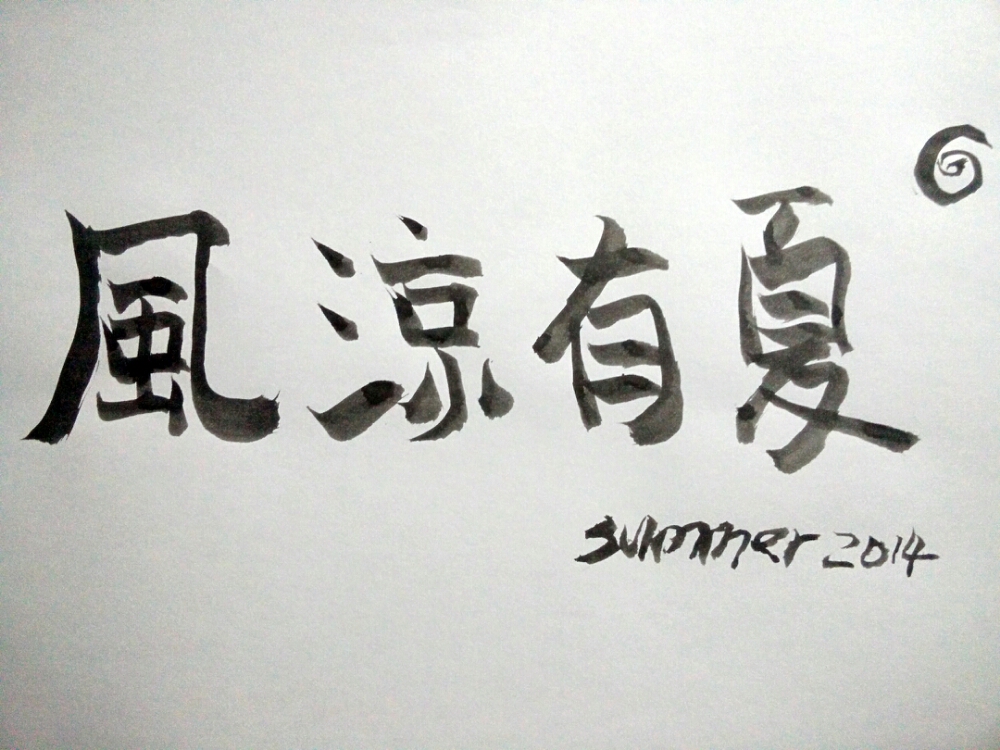 風涼有夏
summer 2014